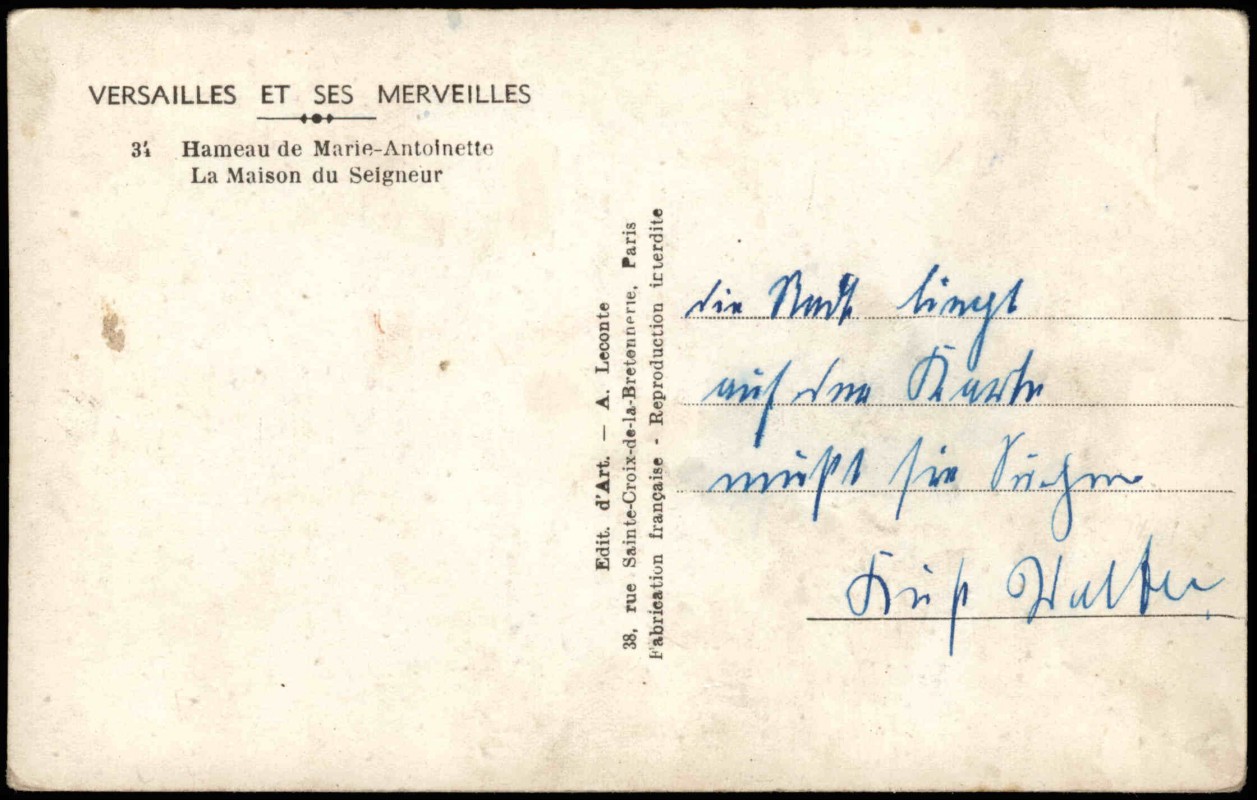 VERSAILLES ET SES MERVEILLES
34 Hameau de Marie-Antoinette
La Maison du Seigneur
Edit. d'Art. — A. Leconte
38, rue Sainte-Croix-de-la-Bretonnerie, Paris
Fabrication française - Reproduction interdite
die Stadt liegt
auf der Karte
mußt sie Suchen
Kuß Walter